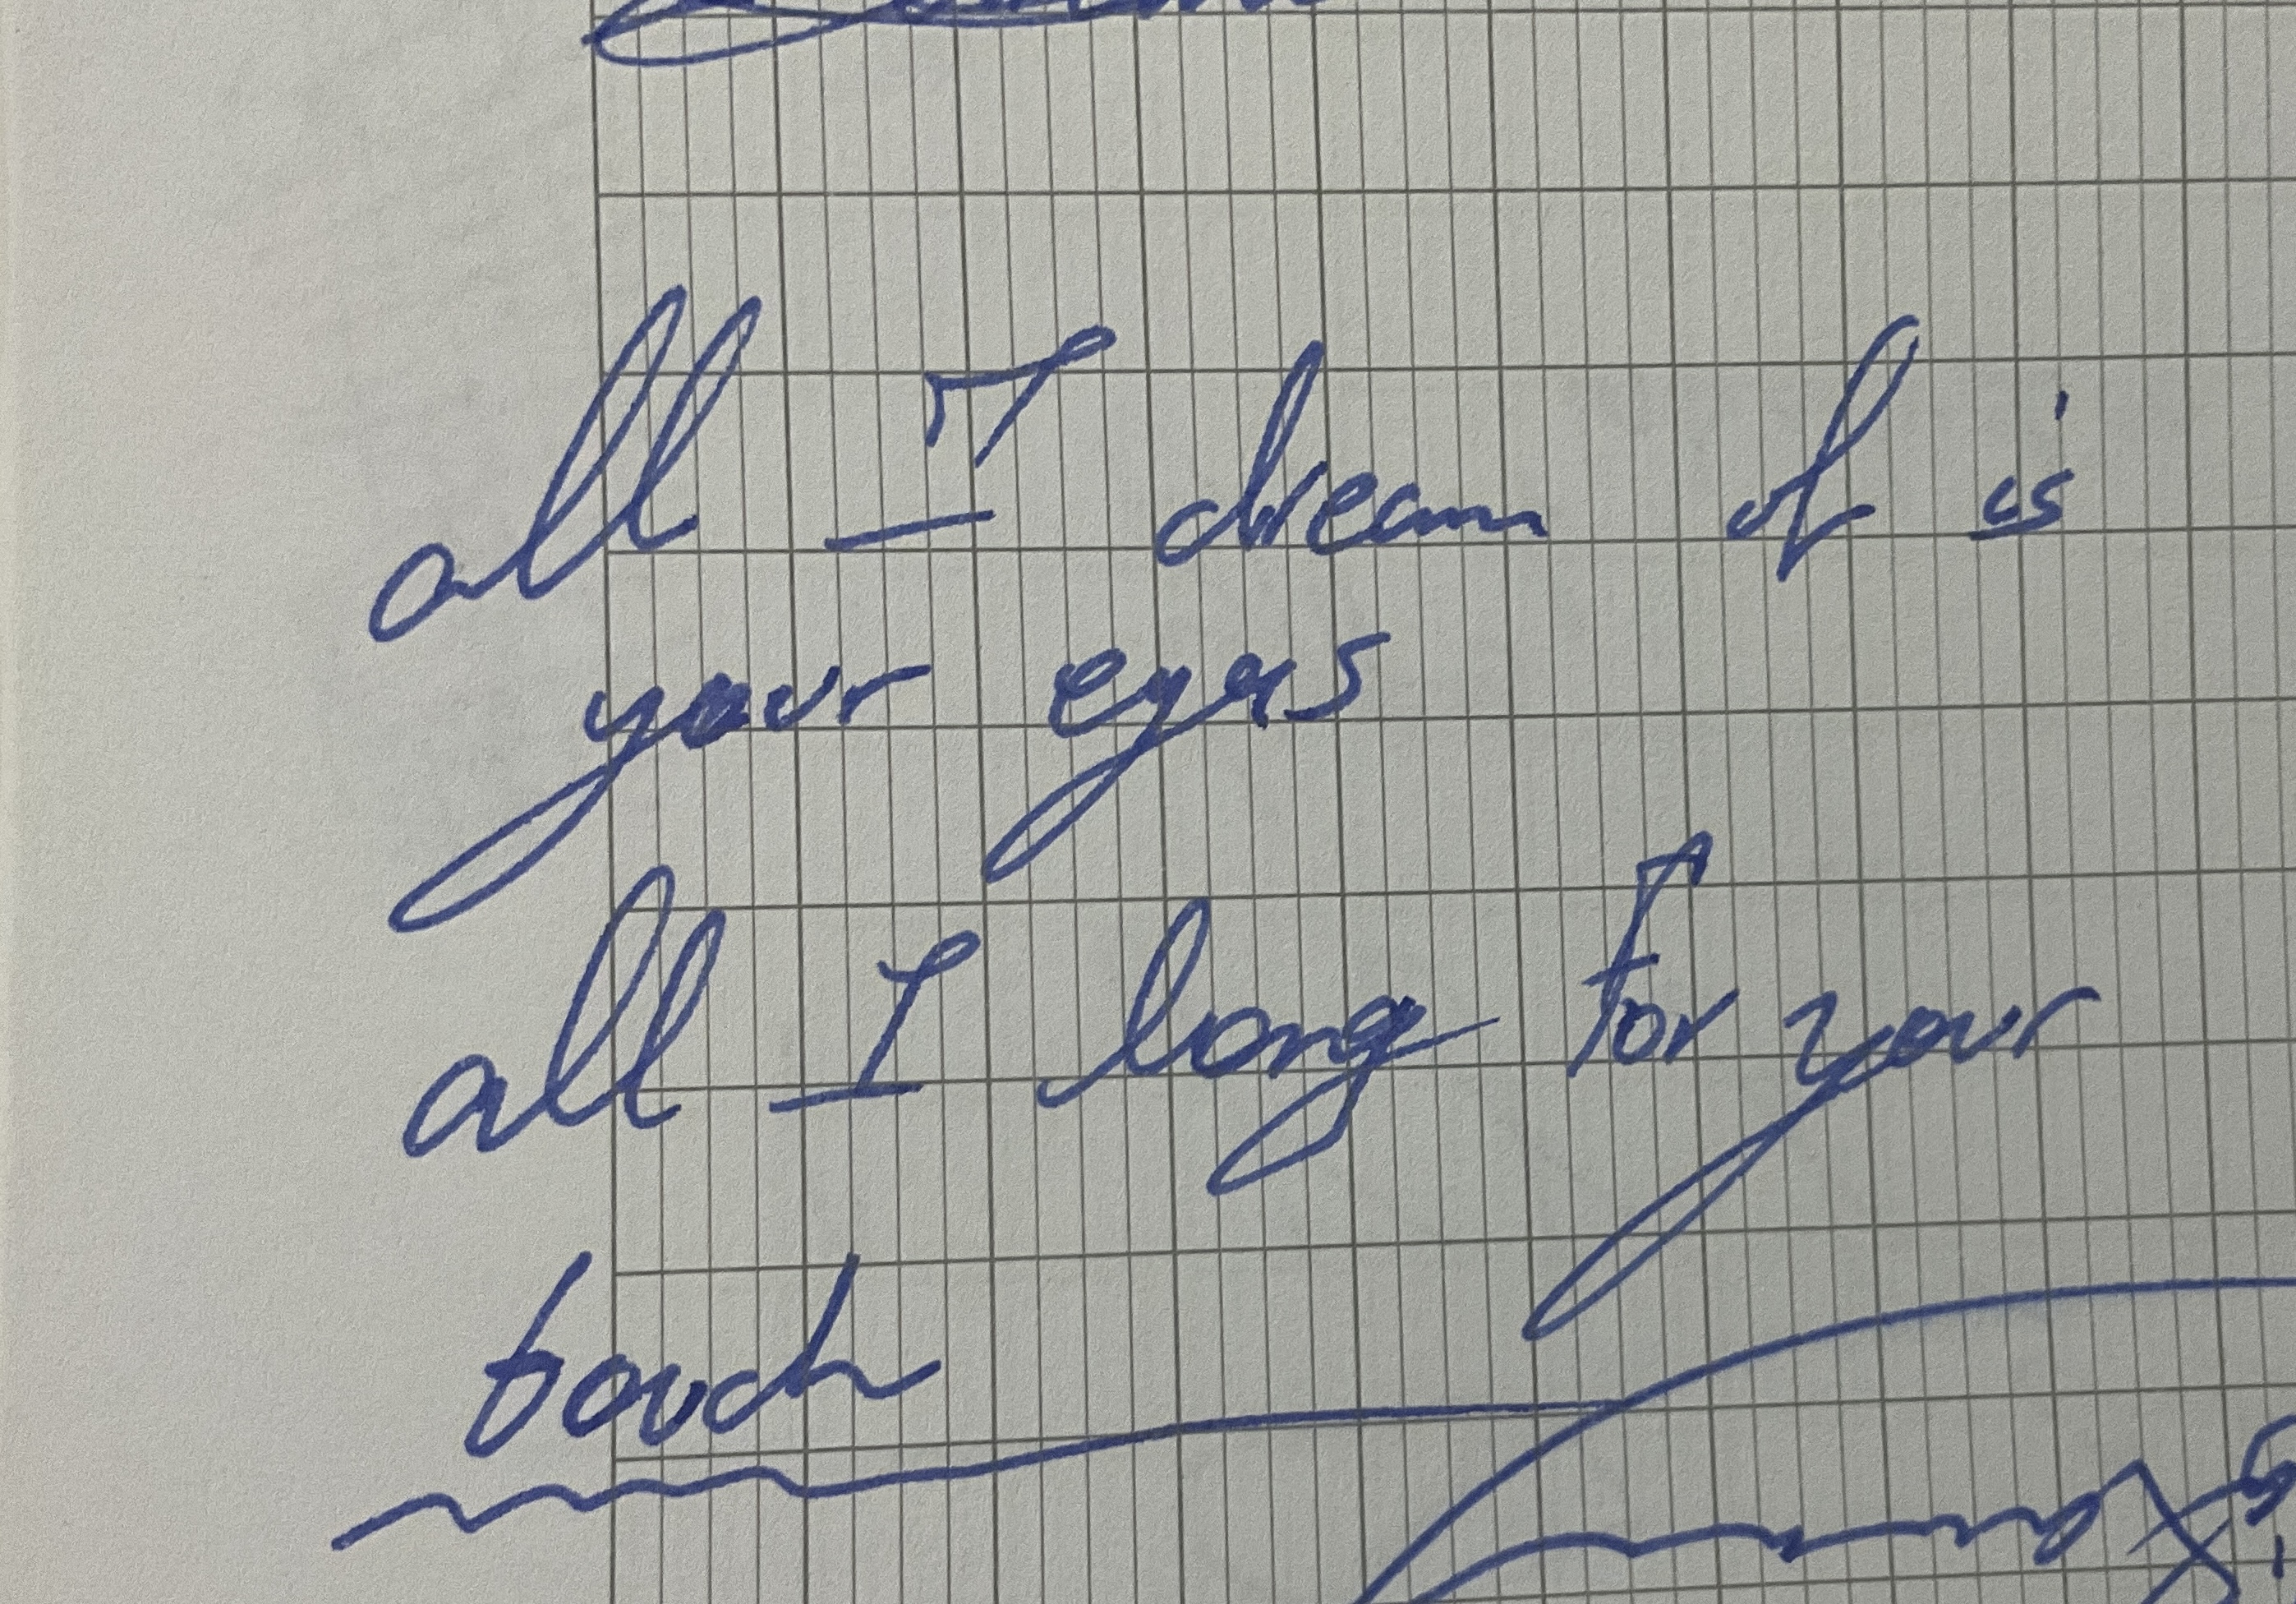 all I dream of is
your eyes
all I long for your
touch